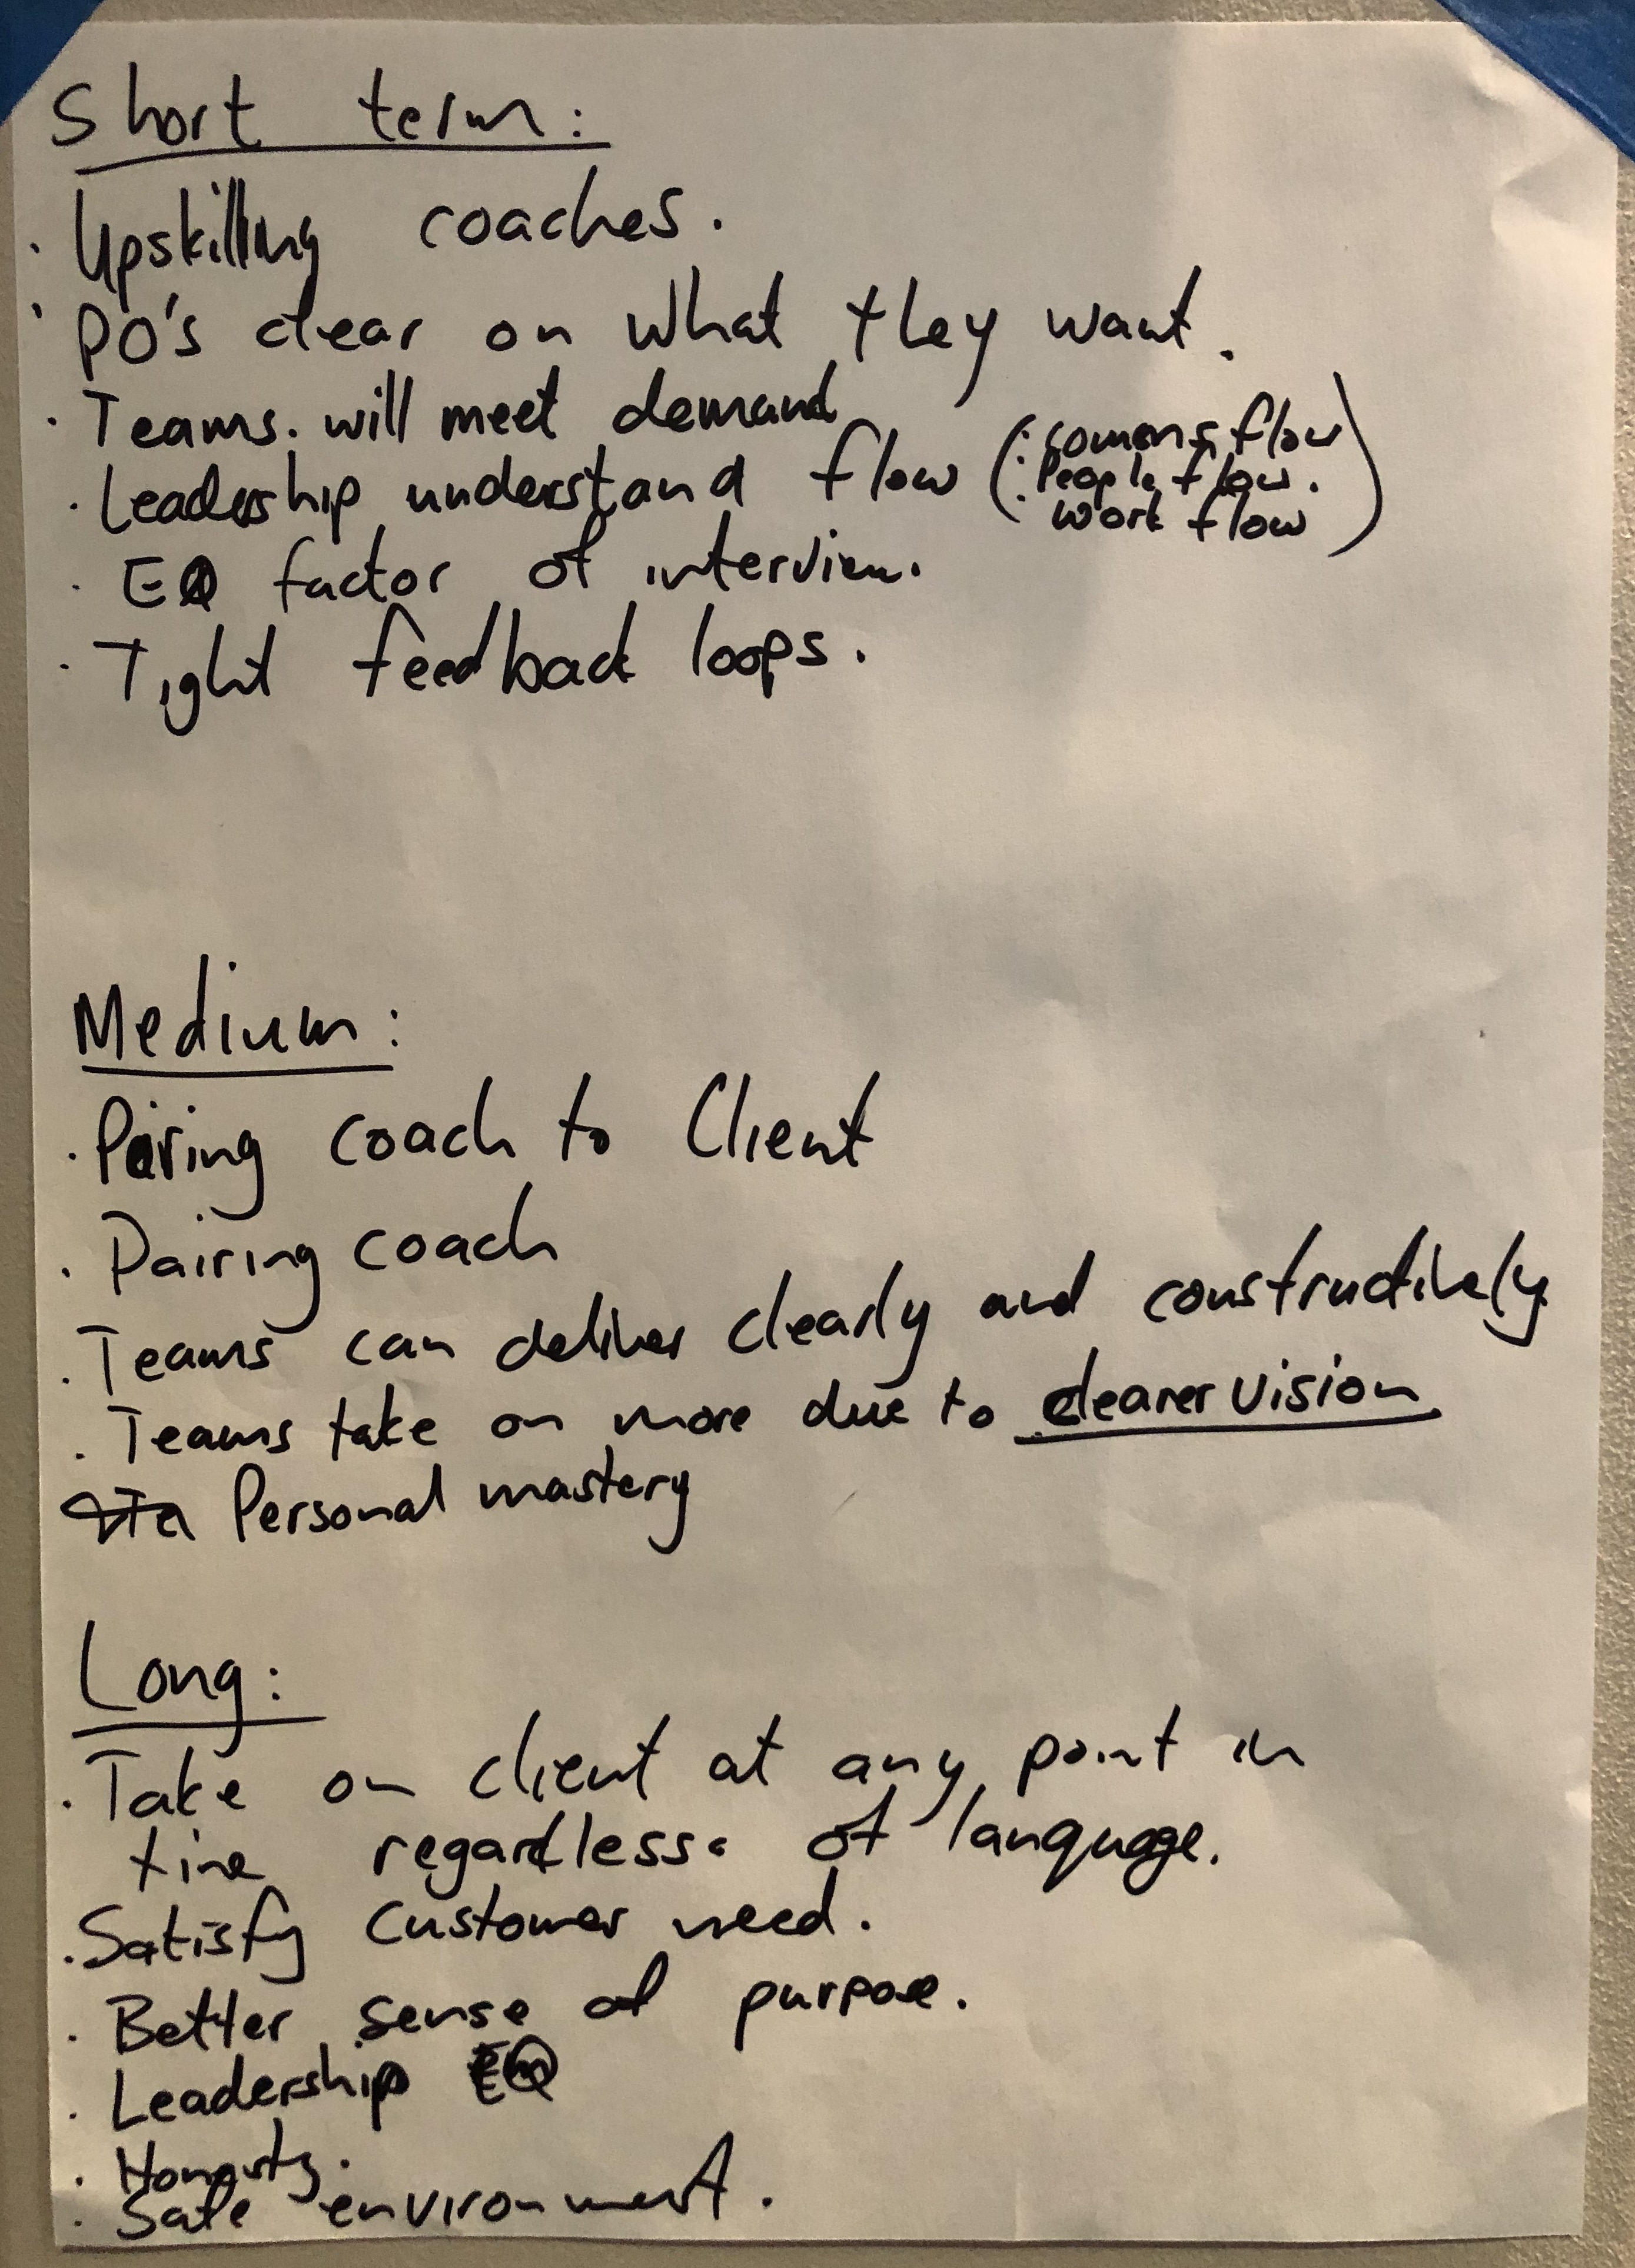 Short term:
· Upskilling coaches.
· PO's clear on what they want.
· Teams. will meet demand
· Leadership understand flow (
· flow
· People flow.
· work flow)
· EQ factor of interview.
· Tight feedback loops.
Medium:
· Pairing coach to Client
· Pairing coach
· Teams can deliver clearly and constructively
· Teams take on more due to clearer vision
Personal mastery
Long:
· Take on client at any point in
time regardless of language.
· Satisfy customer need.
· Better sense of purpose.
· Leadership EQ
· Honesty.
· Safe environment.